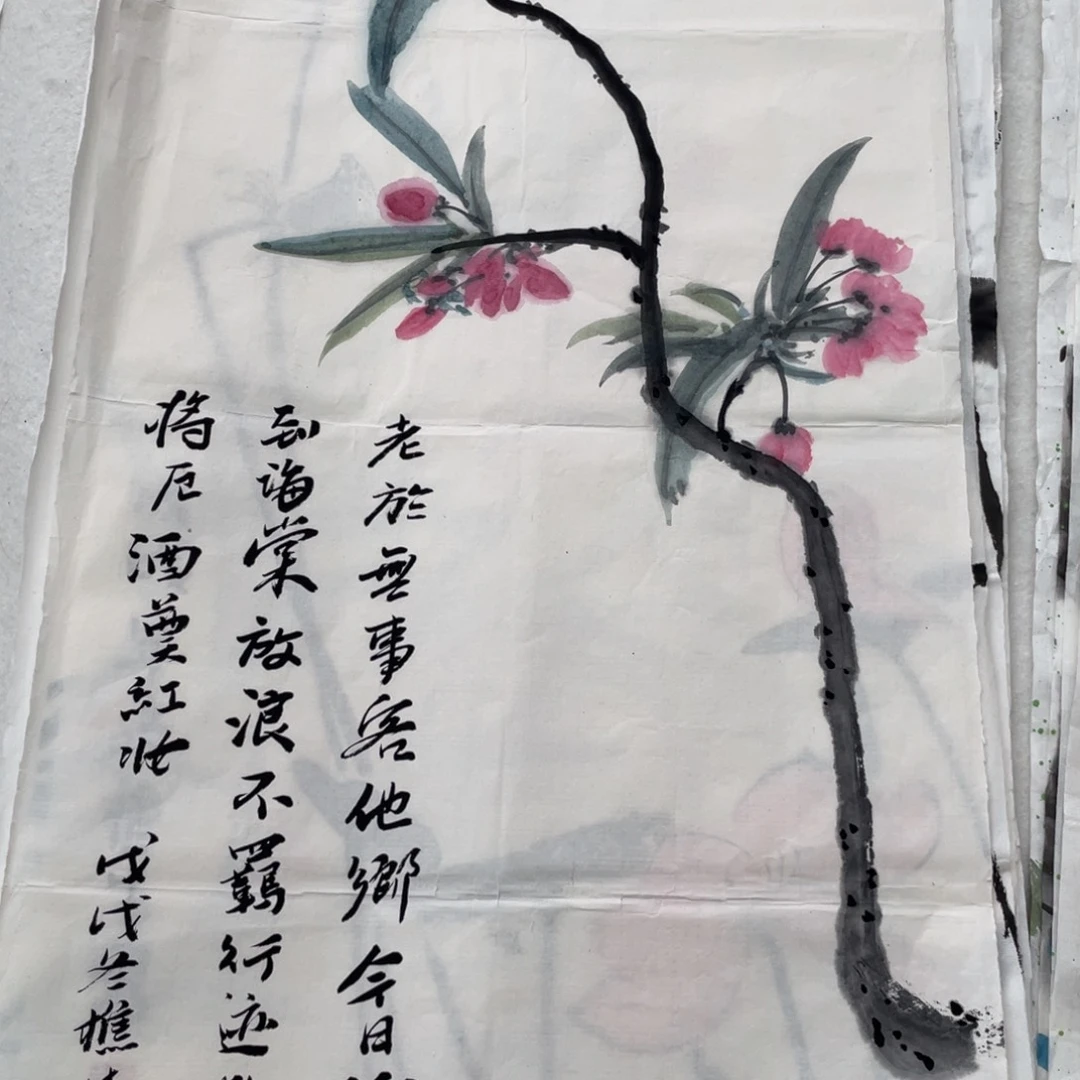 老於無事客他鄉今日
到海棠放浪不羈行迹
将卮酒奠紅妝
戊戌冬樵